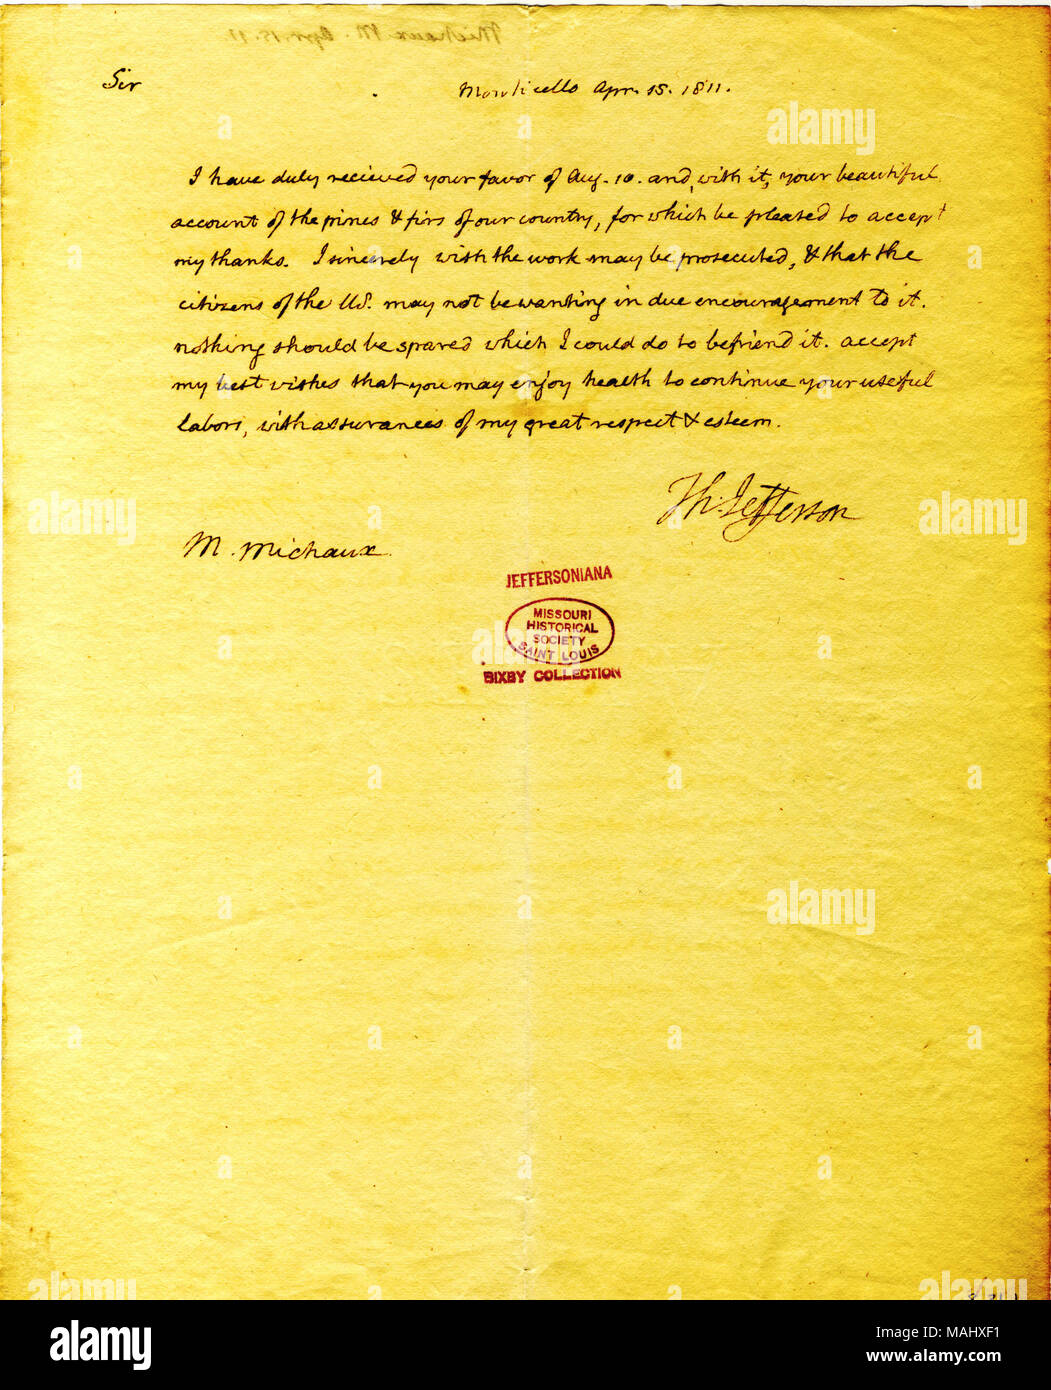 Michaux M. Apr. 15. 11
Sir
Monticello Apr. 15. 1811.
I have duly recieved your favor of Aug. 10. and, with it, your beautiful
account of the pines & firs of our country, for which be pleased to accept
my thanks. I sincerely wish the work may be prosecuted, & that the
citizens of the US. may not be wanting in due encouragement to it.
nothing should be spared which I could do to befriend it. accept
my best wishes that you may enjoy health to continue your useful
labors, with assurances of my great respect & esteem.
Th: Jefferson
M. Michaux.
JEFFERSONIANA
MISSOURI
HISTORICAL
SOCIETY
SAINT LOUIS
BIXBY COLLECTION
alamy
alamy
alamy
alamy
alamy
alamy
alamy
alamy
alamy
alamy
alamy
alamy
a alamy
Image ID: MAHXF1
www.alamy.com